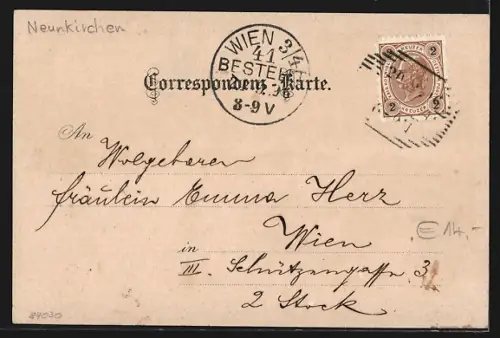 Neunkirchen
WIEN 3/4
41
BESTELLT
8-9 V
Correspondenz-Karte.
2
2
2
An
Wolgeboren
fräulein Emma Herz
Wien
in
III. Schützengasse 3
2 Stock
€ 14,-